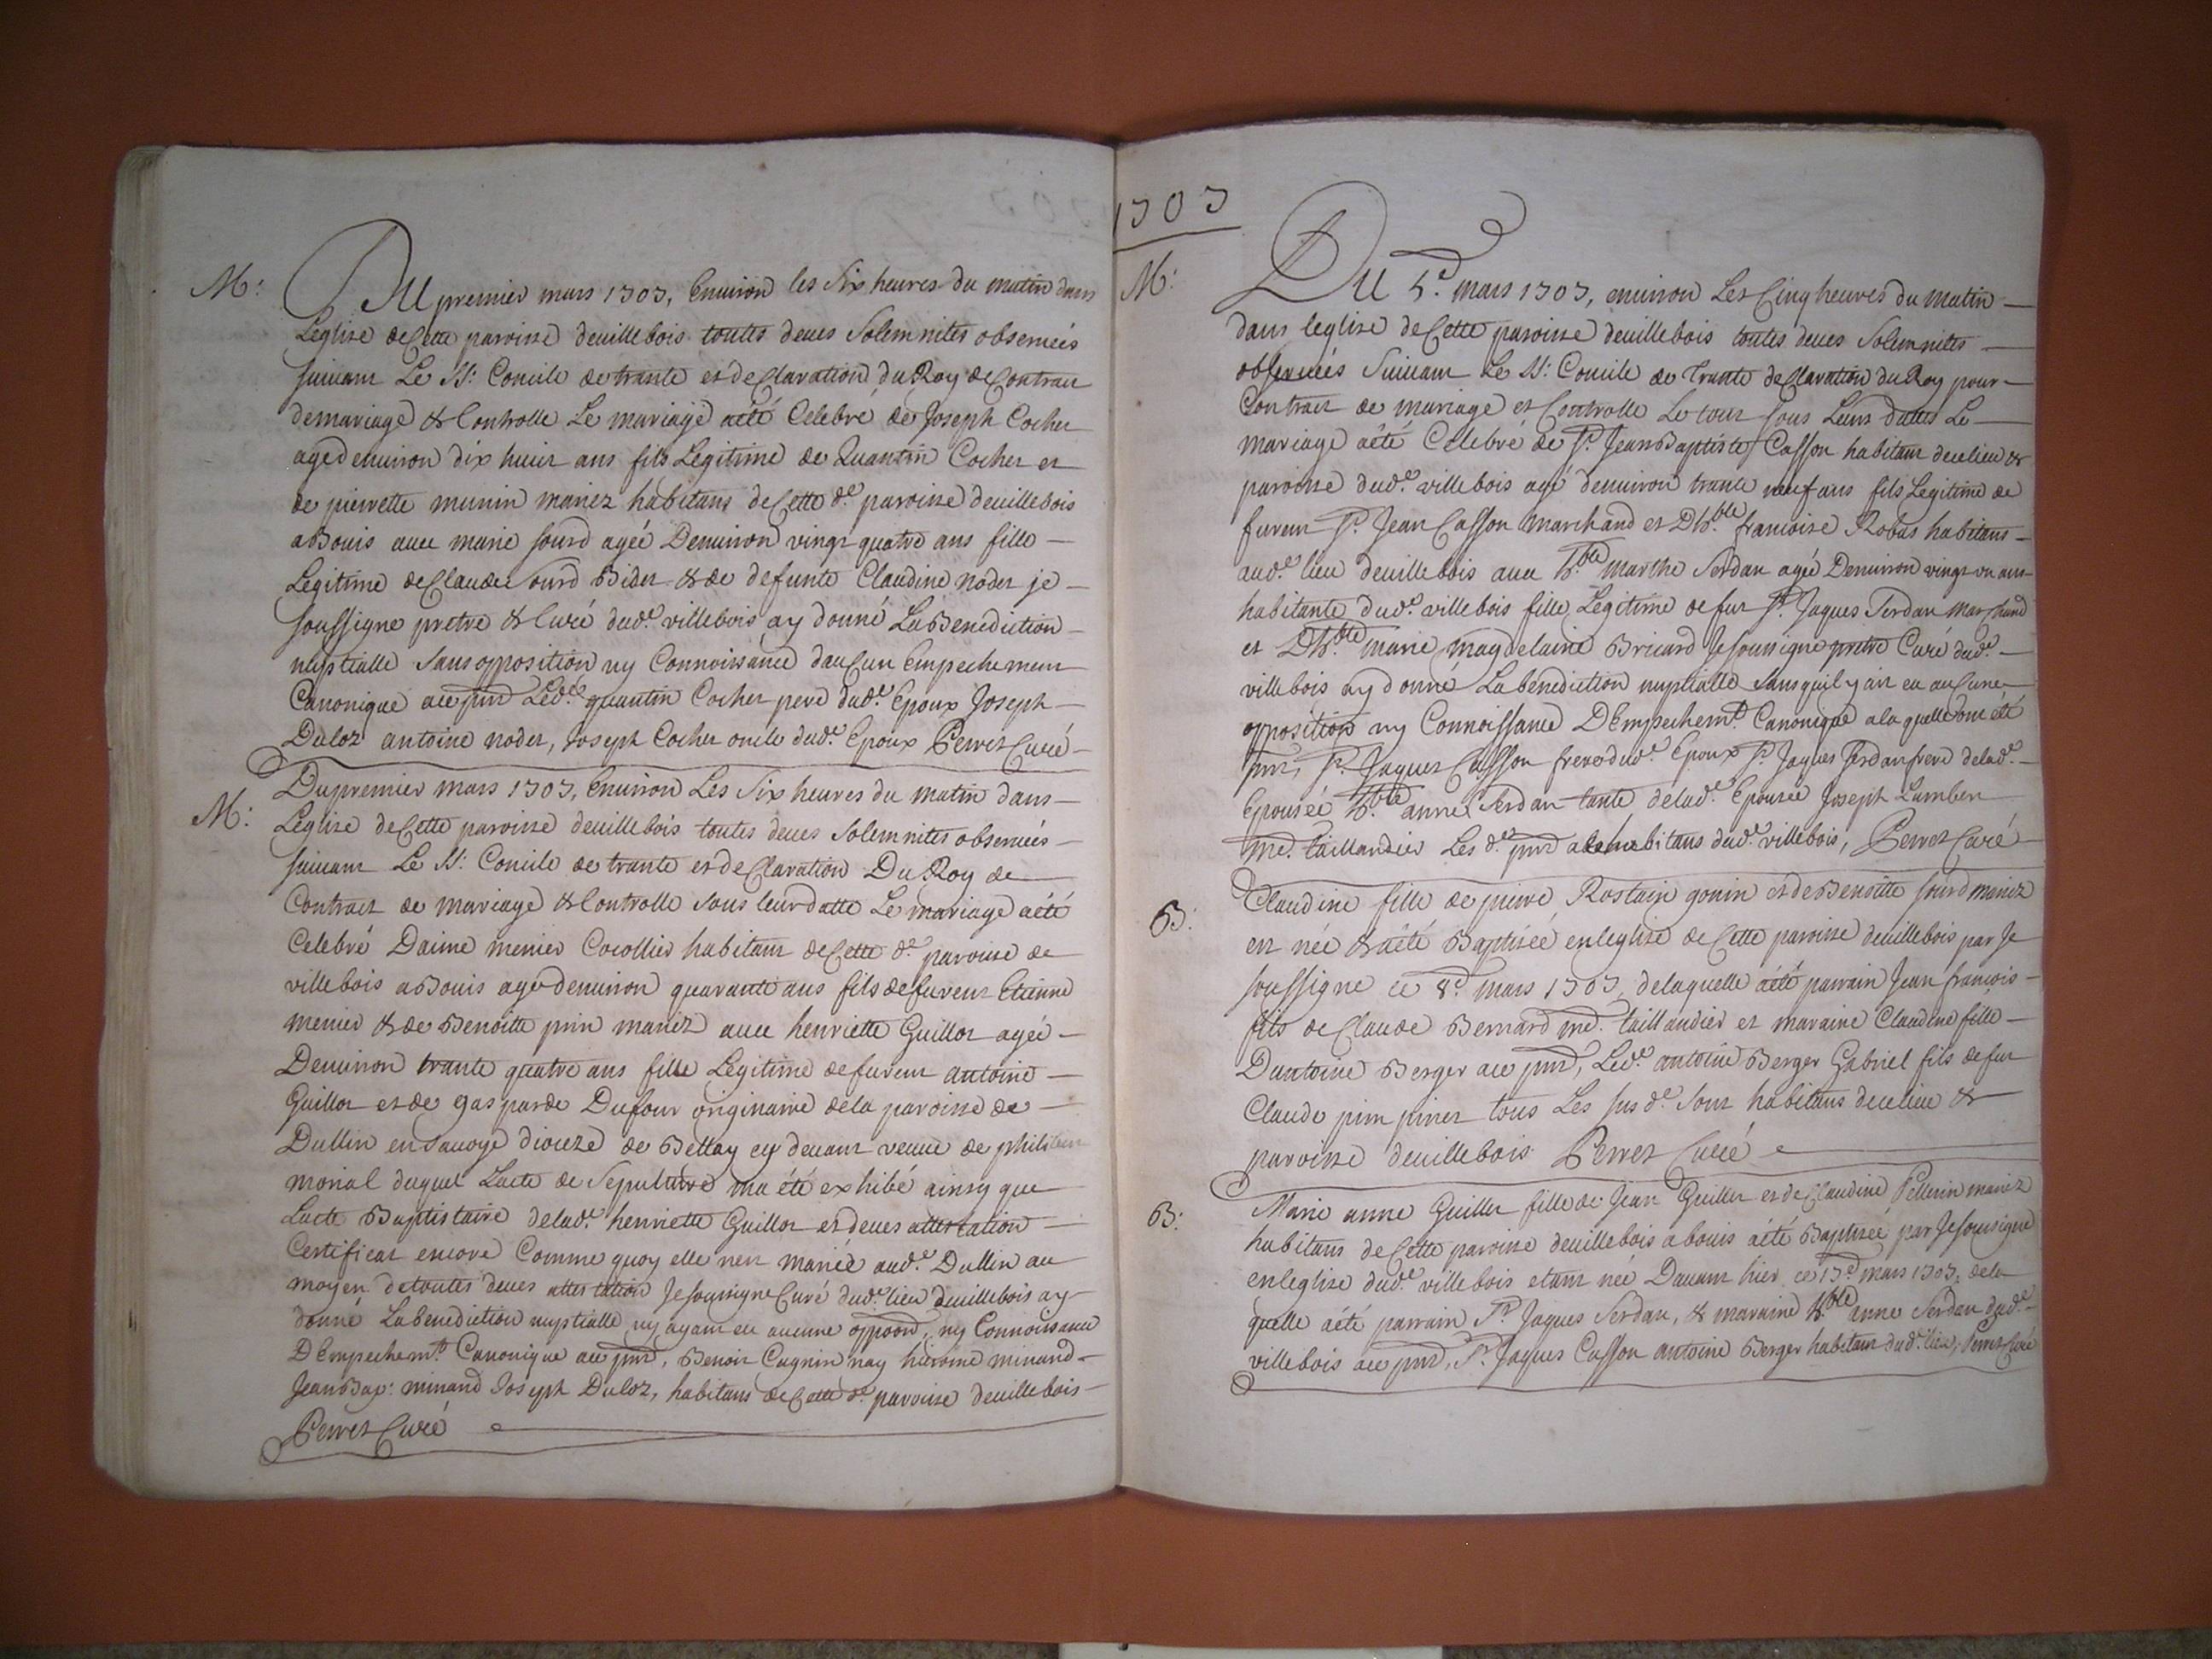 M:
Du premier mars 1707, Enuiron les Six heures du matin dans
Leglize de Cette paroisse deuillebois toutes deues Solemnites obseruées
suiuant Le St: Concile de trante et de Claration du Roy de Contract
demariage & Controlle Le mariage aété Celebré de Joseph Cocher
agé denuiron dix huict ans fils Legitime de Quantin Cocher et
de pierrette munin mariez habitans de Cette d.e paroisse deuillebois
abouis auec marie sourd agée Denuiron vingt quatre ans fille
Legitime de Claude sourd Bider & de defunte Claudine noder je
soussigne pretre & Curé dud.t villebois ay donné La Benediction
nuptialle sans opposition ny Connoissance daucun Empechement
Canonique ace pnt Led.t quantin Cocher pere dud.t Epoux Joseph
Duloz antoine noder, Joseph Cocher oncle dud.t Epoux Perret Curé
M:
Du premier mars 1707, Enuiron Les Six heures du matin dans
Leglize de Cette paroisse deuillebois toutes deues Solemnites obseruées
suiuant Le St: Concile de trante et de Claration Du Roy de
Contract de mariage & Controlle sous leur datte Le mariage aété
Celebré Daime menier Cocollier habitant de Cette d.e paroisse de
villebois abouis agé denuiron quarante ans fils de feu Etienne
menier & de Benoitte prin mariez auec henriette Guillot agée
Denuiron trante quatre ans fille Legitime de feu antoine
Guillot et de gasparde Dufour originaire dela paroisse de
Dullin en sauoye dioceze de Bellay cy deuant veuue de
monal duquel Lacte de Sepulture ma été exhibé ainsy que
Lacte Baptistaire delad.e henriette Guillot et deues attestation
Certificat encore Comme quoy elle nest mariée aud.t Dullin au
moyen detoutes deues attestation Je soussigne Curé dud.t lieu deuillebois ay
donné La benediction nuptialle ny ayant eu aucune opposon, ny Connoissance
D'Empechem.t Canonique ace pnt, Benoit Cugnin nay hierome minand
Jean Bap: minand Joseph Duloz, habitans de Cette d.e paroisse deuillebois
Perret Curé
1707
M:
Du 5.e mars 1707, enuiron Les Cinq heures du matin
dans leglize de Cette paroisse deuillebois toutes deues Solemnites
obseruées Suiuant Le St: Concile de Trante de Claration du Roy pour
Contract de mariage et Controlle Le tout sous Leurs dattes Le
mariage aété Celebré de Sr. Jean Baptiste Casson habitant decelieu &
paroisse dud.t villebois agé denuiron trante neuf ans fils Legitime de
feu Sr. Jean Casson Marchand et Dh.ble francoise Robas habitans
aud.t lieu deuillebois auec h.ble marthe Serdan agée Denuiron vingt un ans
habitante dud.t villebois fille Legitime de feu Sr. Jaques Serdan Marchand
et Dh.ble marie magdelaine Bricard Je soussigne pretre Curé dud.t
villebois ay donné La benediction nuptialle sans quil y ait eu aucune
opposition ny Connoissance D'Empechem.t Canonique ala quelle ont été
pnt, Sr. Jaques Casson frere dud.t Epoux Sr. Jaques Serdan frere delad.e
Epousée h.ble anne Serdan tante delad.e Epousée Joseph Lambert
me. taillandier Les d.ts pnt habitans dud.t villebois, Perret Curé
B:
Claudine fille de pierre Rostain gonin et de Benoitte sourd mariez
est née & aété Baptisée enleglize de Cette paroisse deuillebois par Je
soussigne ce 8.e mars 1707, delaquelle aété parrain Jean francois
fils de Claude Bernard me. taillandier et maraine Claudine fille
Dantoine Berger ace pnt, Led.t antoine Berger Gabriel fils de feu
Claude pim piner tous Les sus d.t sont habitans decelieu &
paroisse deuillebois Perret Curé
B:
Marie anne Guiller fille de Jean Guiller et de Claudine Pellerin mariez
habitans de Cette paroisse deuillebois abouis aété Baptisée par Je soussigne
enleglize dud.t villebois etant née Dauant hier ce 13.e mars 1707, dela
quelle aété parrain Sr. Jaques Serdan, & maraine h.ble anne Serdan dud.t
villebois ace pnt, Sr. Jaques Casson antoine Berger habitant dud.t lieu, Perret Curé